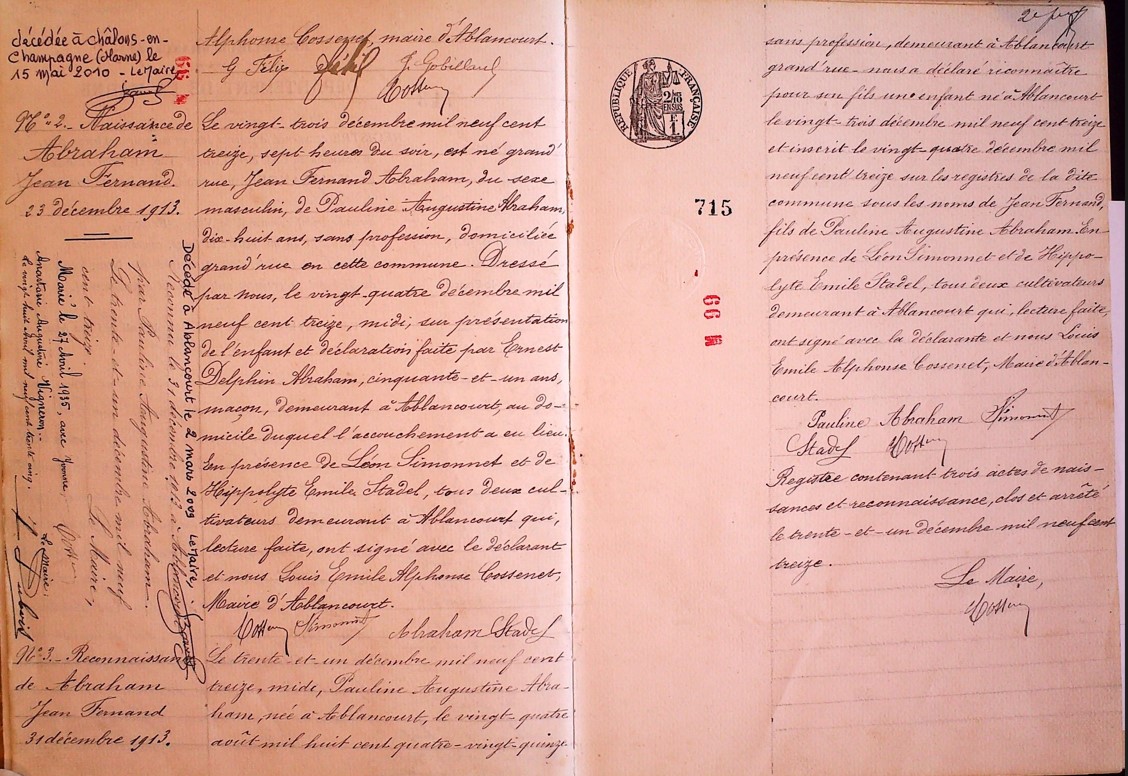 décédée à Châlons-en-
Champagne (Marne) le
15 mai 2010 - Le Maire
Alphonse Cossenet, maire d'Ablancourt.
G Félix Félix J. Gobillard
Cossenet
N° 2 - Naissance de
Abraham
Jean Fernand.
23 décembre 1913.
Le vingt-trois décembre mil neuf cent
treize, sept heures du soir, est né grand'
rue, Jean Fernand Abraham, du sexe
masculin, de Pauline Augustine Abraham,
dix-huit ans, sans profession, domiciliée
grand'rue en cette commune. Dressé
par nous, le vingt-quatre décembre mil
neuf cent treize, midi, sur présentation
de l'enfant et déclaration faite par Ernest
Delphin Abraham, cinquante-et-un ans,
maçon, demeurant à Ablancourt, au do-
micile duquel l'accouchement a eu lieu
En présence de Léon Simonnet et de
Hippolyte Emile Stadel, tous deux cul-
tivateurs demeurant à Ablancourt qui,
lecture faite, ont signé avec le déclarant
et nous Louis Emile Alphonse Cossenet,
Maire d'Ablancourt.
Cossenet Simonnet Abraham Stadel
Décédé à Ablancourt le 2 mars 2009 Le Maire,
Reconnu le 31 décembre 1913 à Ablancourt
par Pauline Augustine Abraham.
Le trente-et-un décembre mil neuf
cent treize
Le Maire,
Marié le 27 Avril 1935, avec Yvonne
Anastasie Augustine Vigneron.-
Le vingt huit Avril mil neuf cent trente cinq.
Le Maire.
N° 3 - Reconnaissance
de Abraham
Jean Fernand
31 décembre 1913.
Le trente-et-un décembre mil neuf cent
treize, midi, Pauline Augustine Abra-
ham, née à Ablancourt, le vingt-quatre
août mil huit cent quatre-vingt-quinze
RÉPUBLIQUE FRANÇAISE
2/10
EN SUS
F
1
715
66
2e
sans profession, demeurant à Ablancourt
grand'rue - nous a déclaré reconnaître
pour son fils un enfant né à Ablancourt
le vingt-trois décembre mil neuf cent treize
et inscrit le vingt-quatre décembre mil
neuf cent treize sur les registres de la dite
commune sous les noms de Jean Fernand,
fils de Pauline Augustine Abraham. En
présence de Léon Simonnet et de Hippo-
lyte Emile Stadel, tous deux cultivateurs
demeurant à Ablancourt qui, lecture faite,
ont signé avec la déclarante et nous Louis
Emile Alphonse Cossenet, Maire d'Ablan-
court.
Pauline Abraham Simonnet
Stadel Cossenet
Registre contenant trois actes de nais-
sances et reconnaissance, clos et arrêté
le trente-et-un décembre mil neuf cent
treize.
Le Maire,
Cossenet